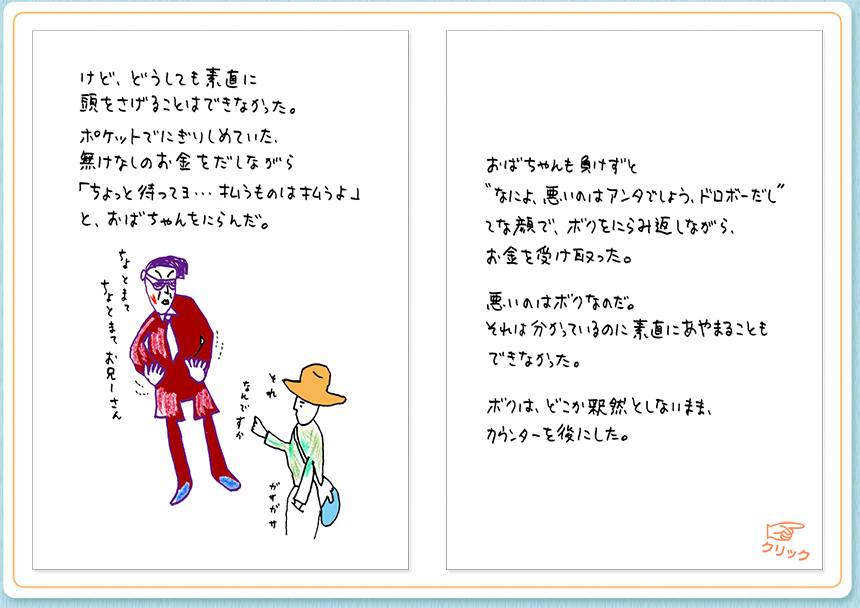 けど、どうしても素直に
頭をさげることはできなかった。
ポケットでにぎりしめていた、
無けなしのお金をだしながら
「ちょっと待ってヨ…払うものは払うよ」
と、おばちゃんをにらんだ。
ちょとまて
ちょとまて お兄ーさん
それ
なんですか
ガサガサ
おばちゃんも負けずと
“なによ、悪いのはアンタでしょう、ドロボーだし”
てな顔で、ボクをにらみ返しながら、
お金を受け取った。
悪いのはボクなのだ。
それは分かっているのに素直にあやまることも
できなかった。
ボクは、どこか釈然としないまま、
カウンターを後にした。
クリック